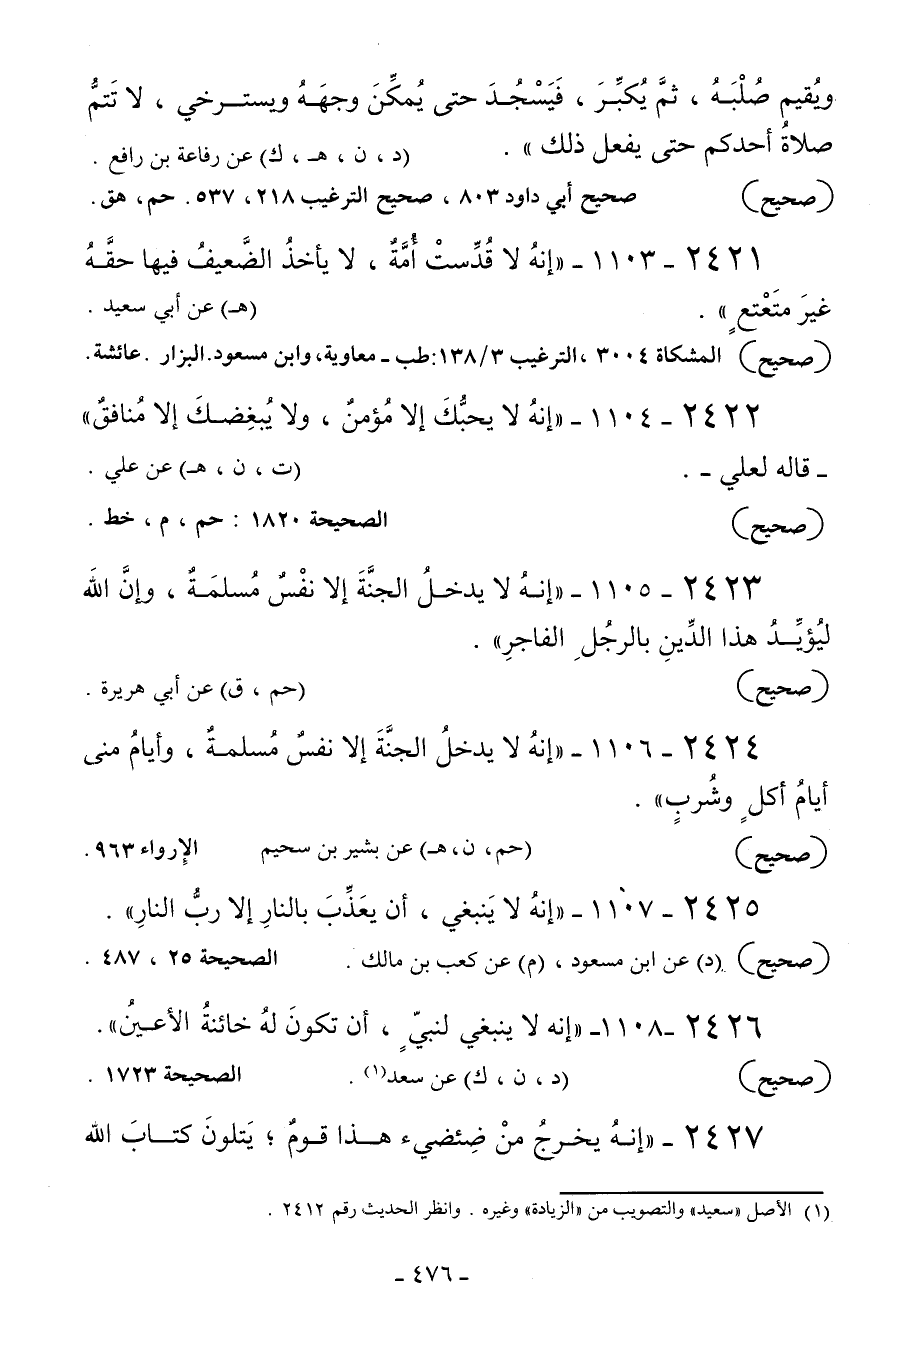 ويُقيم صُلْبَـهُ ، ثمَّ يُكبِّـرَ ، فَيَسْجُـدَ حتى يُمكِّنَ وجهَـهُ ويستـرخي ، لا تَتمُّ
صلاةُ أحدكم حتى يفعل ذلك » . (د ، ن ، هـ ، ك) عن رفاعة بن رافع .
(صحيح) صحيح أبي داود ٨٠٣ ، صحيح الترغيب ٢١٨ ، ٥٣٧ . حم، هق .
٢٤٢١ ـ ١١٠٣ ـ «إنهُ لا قُدِّستْ أُمَّةٌ ، لا يأخذُ الضَّعيفُ فيها حقَّـهُ
غيرَ متَعْتعٍ » . (هـ) عن أبي سعيد .
(صحيح) المشكاة ٣٠٠٤ ،الترغيب ١٣٨/٣ :طب ـ معاوية، وابن مسعود.البزار .عائشة.
٢٤٢٢ ـ ١١٠٤ ـ «إنهُ لا يحبُّكَ إلا مُؤمنٌ ، ولا يُبغِضـكَ إلا مُنافقٌ»
ـ قاله لعلي ـ . (ت ، ن ، هـ) عن علي .
(صحيح) الصحيحة ١٨٢٠ : حم ، م ، خط .
٢٤٢٣ ـ ١١٠٥ ـ «إنـهُ لا يدخـلُ الجنَّةَ إلا نفْسٌ مُسلمَـةٌ ، وإنَّ اللهَ
ليُؤيِّـدُ هذا الدِّينِ بالرجُلِ الفاجرِ» .
(صحيح) (حم ، ق) عن أبي هريرة .
٢٤٢٤ ـ ١١٠٦ ـ «إنهُ لا يدخلُ الجنَّةَ إلا نفسٌ مُسلمـةٌ ، وأيامُ منى
أيامُ أكلٍ وشُربٍ» .
(صحيح) (حم، ن، هـ) عن بشير بن سحيم الإرواء ٩٦٣ .
٢٤٢٥ ـ ١١٠٧ ـ «إنهُ لا يَنبغي ، أن يعَذِّبَ بالنارِ إلا ربُّ النارِ» .
(صحيح) (د) عن ابن مسعود ، (م) عن كعب بن مالك . الصحيحة ٢٥ ، ٤٨٧ .
٢٤٢٦ ـ ١١٠٨ ـ «إنه لا ينبغي لنبيّ ٍ ، أن تكونَ لهُ خائنةُ الأعـينُ» .
(صحيح) (د ، ن ، ك) عن سعد(١) . الصحيحة ١٧٢٣ .
٢٤٢٧ ـ «إنـهُ يخـرجُ منْ ضِئضيء هـذا قـومٌ ؛ يَتلونَ كتـابَ الله
(١) الأصل «سعيد» والتصويب من «الزيادة» وغيره . وانظر الحديث رقم ٢٤١٢ .
ـ ٤٧٦ ـ